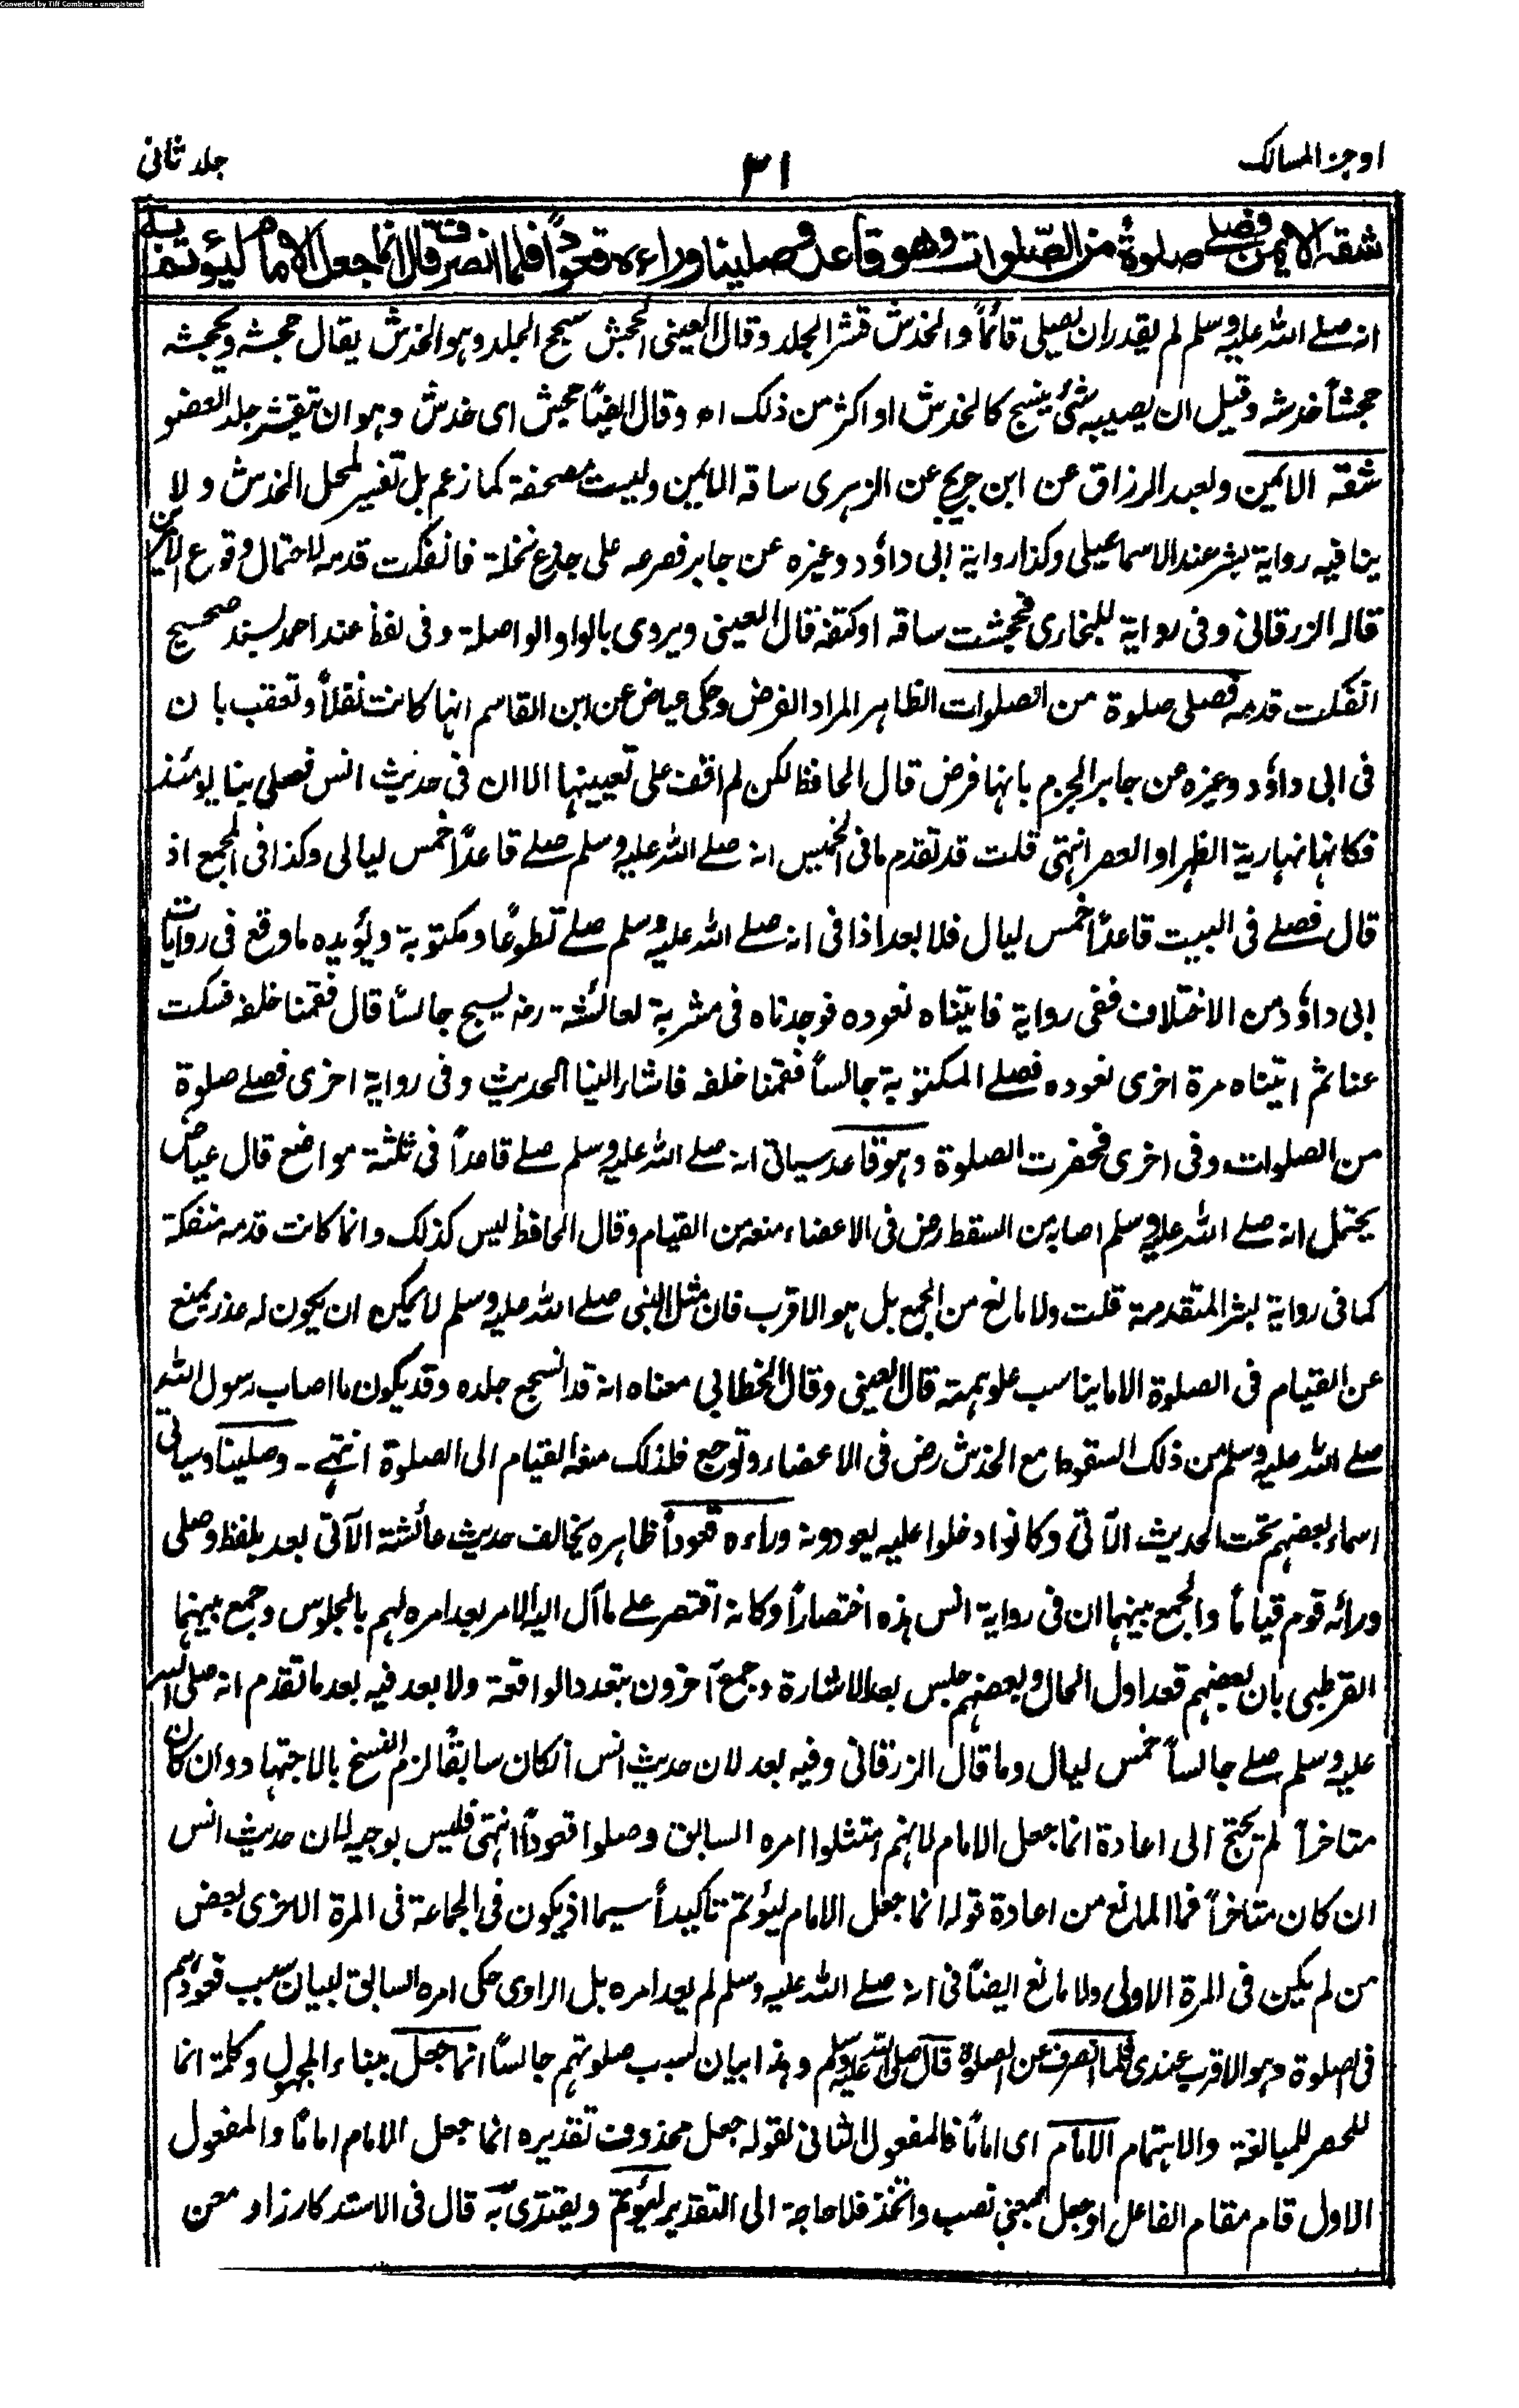 Converted by Tiff Combine - unregistered
اوجز المسالك
٣١
جلد ثانی
شقه الايمن فصلى صلوة من الصلوات وهو قاعد وصلينا وراءه قعوداً فلما انصرف قال انما جعل الامام ليؤتم به
انه صلے الله عليه وسلم لم يقدر ان يصلى قائماً والخدش قشر الجلد وقال العينى الجحش سحج الجلد وهو الخدش يقال جحشه ويجحشه
جحشاً خدشه وقيل ان يصيبه شئ ينسحج كالخدش او اكثر من ذلك اه وقال ايضاً جحش اى خدش وهو ان يتقشر جلد العضو
شقه الايمن ولعبد الرزاق عن ابن جريج عن الزهرى ساقه الايمن وليست مصحفة كما زعم بل تفسير لمحل الخدش ولا
ينافيه رواية بشر عند الاسماعيلى وكذا رواية ابى داؤد وغيره عن جابر فصرعه على جذع نخلة فانفكت قدمه لاحتمال وقوع الامرين
قاله الزرقانى وفى رواية للبخارى فجحشت ساقه او كتفه قال العينى ويروى بالواو الواصلة وفى لفظ عند احمد بسند صحيح
انفكت قدمه فصلى صلوة من الصلوات الظاهر المراد الفرض وحكى عياض عن ابن القاسم انها كانت نفلاً وتعقب بان
فى ابى داؤد وغيره عن جابر الجزم بانها فرض قال الحافظ لكن لم اقف على تعيينها الا ان فى حديث انس فصلى بنا يومئذ
فكانها نهارية الظهر او العصر انتهى قلت قد تقدم ما فى الخميس انه صلے الله عليه وسلم صلے قاعداً خمس ليالى وكذا فى المجمع اذ
قال فصلے فى البيت قاعداً خمس ليال فلا بعد اذا فى انه صلے الله عليه وسلم صلے تطوعاً ومكتوبة ويؤيده ما وقع فى روايات
ابى داؤد من الاختلاف ففى رواية فاتيناه نعوده فوجدناه فى مشربة لعائشة رض يسبح جالساً قال فقمنا خلفه فسكت
عنا ثم اتيناه مرة اخرى نعوده فصلے المكتوبة جالساً فقمنا خلفه فاشار الينا الحديث وفى رواية اخرى فصلے صلوة
من الصلوات وفى اخرى فحضرت الصلوة وهو قاعد سياتى انه صلے الله عليه وسلم صلے قاعداً فى ثلثة مواضع قال عياض
يحتمل انه صلے الله عليه وسلم اصابه من السقط رض فى الاعضاء منعه من القيام وقال الحافظ ليس كذلك وانما كانت قدمه منفكة
كما فى رواية بشر المتقدمة قلت ولا مانع من الجمع بل هو الاقرب فان مثل النبى صلے الله عليه وسلم لا يمكن ان يكون له عذر يمنع
عن القيام فى الصلوة الا ما يناسب علو همته قال العينى وقال الخطابى معناه انه قد انسحج جلده وقد يكون ما اصاب رسول الله
صلے الله عليه وسلم من ذلك السقوط مع الخدش رض فى الاعضاء وتوجع فلذلك منعه القيام الى الصلوة انتهے - وصلينا وسياتى
اسماء بعضهم تحت الحديث الآتى وكانوا دخلوا عليه يعودونه وراءه قعوداً ظاهره يخالف حديث عائشة الآتى بعد بلفظ وصلى
ورائه قوم قياماً والجمع بينهما ان فى رواية انس هذه اختصاراً وكانه اقتصر على ما آل اليه الامر بعد امره لهم بالجلوس وجمع بينهما
القرطبى بان بعضهم قعد اول الحال وبعضهم جلس بعد الاشارة وجمع آخرون بتعدد الواقعة ولا بعد فيه بعد ما تقدم انه صلى الله
عليه وسلم صلے جالساً خمس ليال وما قال الزرقانى وفيه بعد لان حديث انس انكان سابقاً لزم النسخ بالاجتهاد وان كان
متاخراً لم يحتج الى اعادة انما جعل الامام لانهم امتثلوا امره السابق وصلوا قعوداً انتهى فليس بوجيه لان حديث انس
ان كان متاخراً فما المانع من اعادة قوله انما جعل الامام ليؤتم تاكيداً سيما اذ يكون فى الجماعة فى المرة الاخرى بعض
من لم يكن فى المرة الاولى ولا مانع ايضاً فى انه صلے الله عليه وسلم لم يعد امره بل الراوى حكى امره السابق لبيان سبب قعودهم
فى الصلوة وهو الاقرب عندى فلما انصرف عن الصلوة قال صلى الله عليه وسلم وهذا بيان لسبب صلوتهم جالساً انما جعل ببناء المجهول وكلمة انما
للحصر للمبالغة والاهتمام الامام اى اماماً فالمفعول الثانى لقوله جعل محذوف تقديره انما جعل الامام اماماً والمفعول
الاول قام مقام الفاعل او جعل بمعنى نصب واتخذ فلا حاجة الى التقدير ليؤتم ويقتدى به قال فى الاستذكار زاد معن